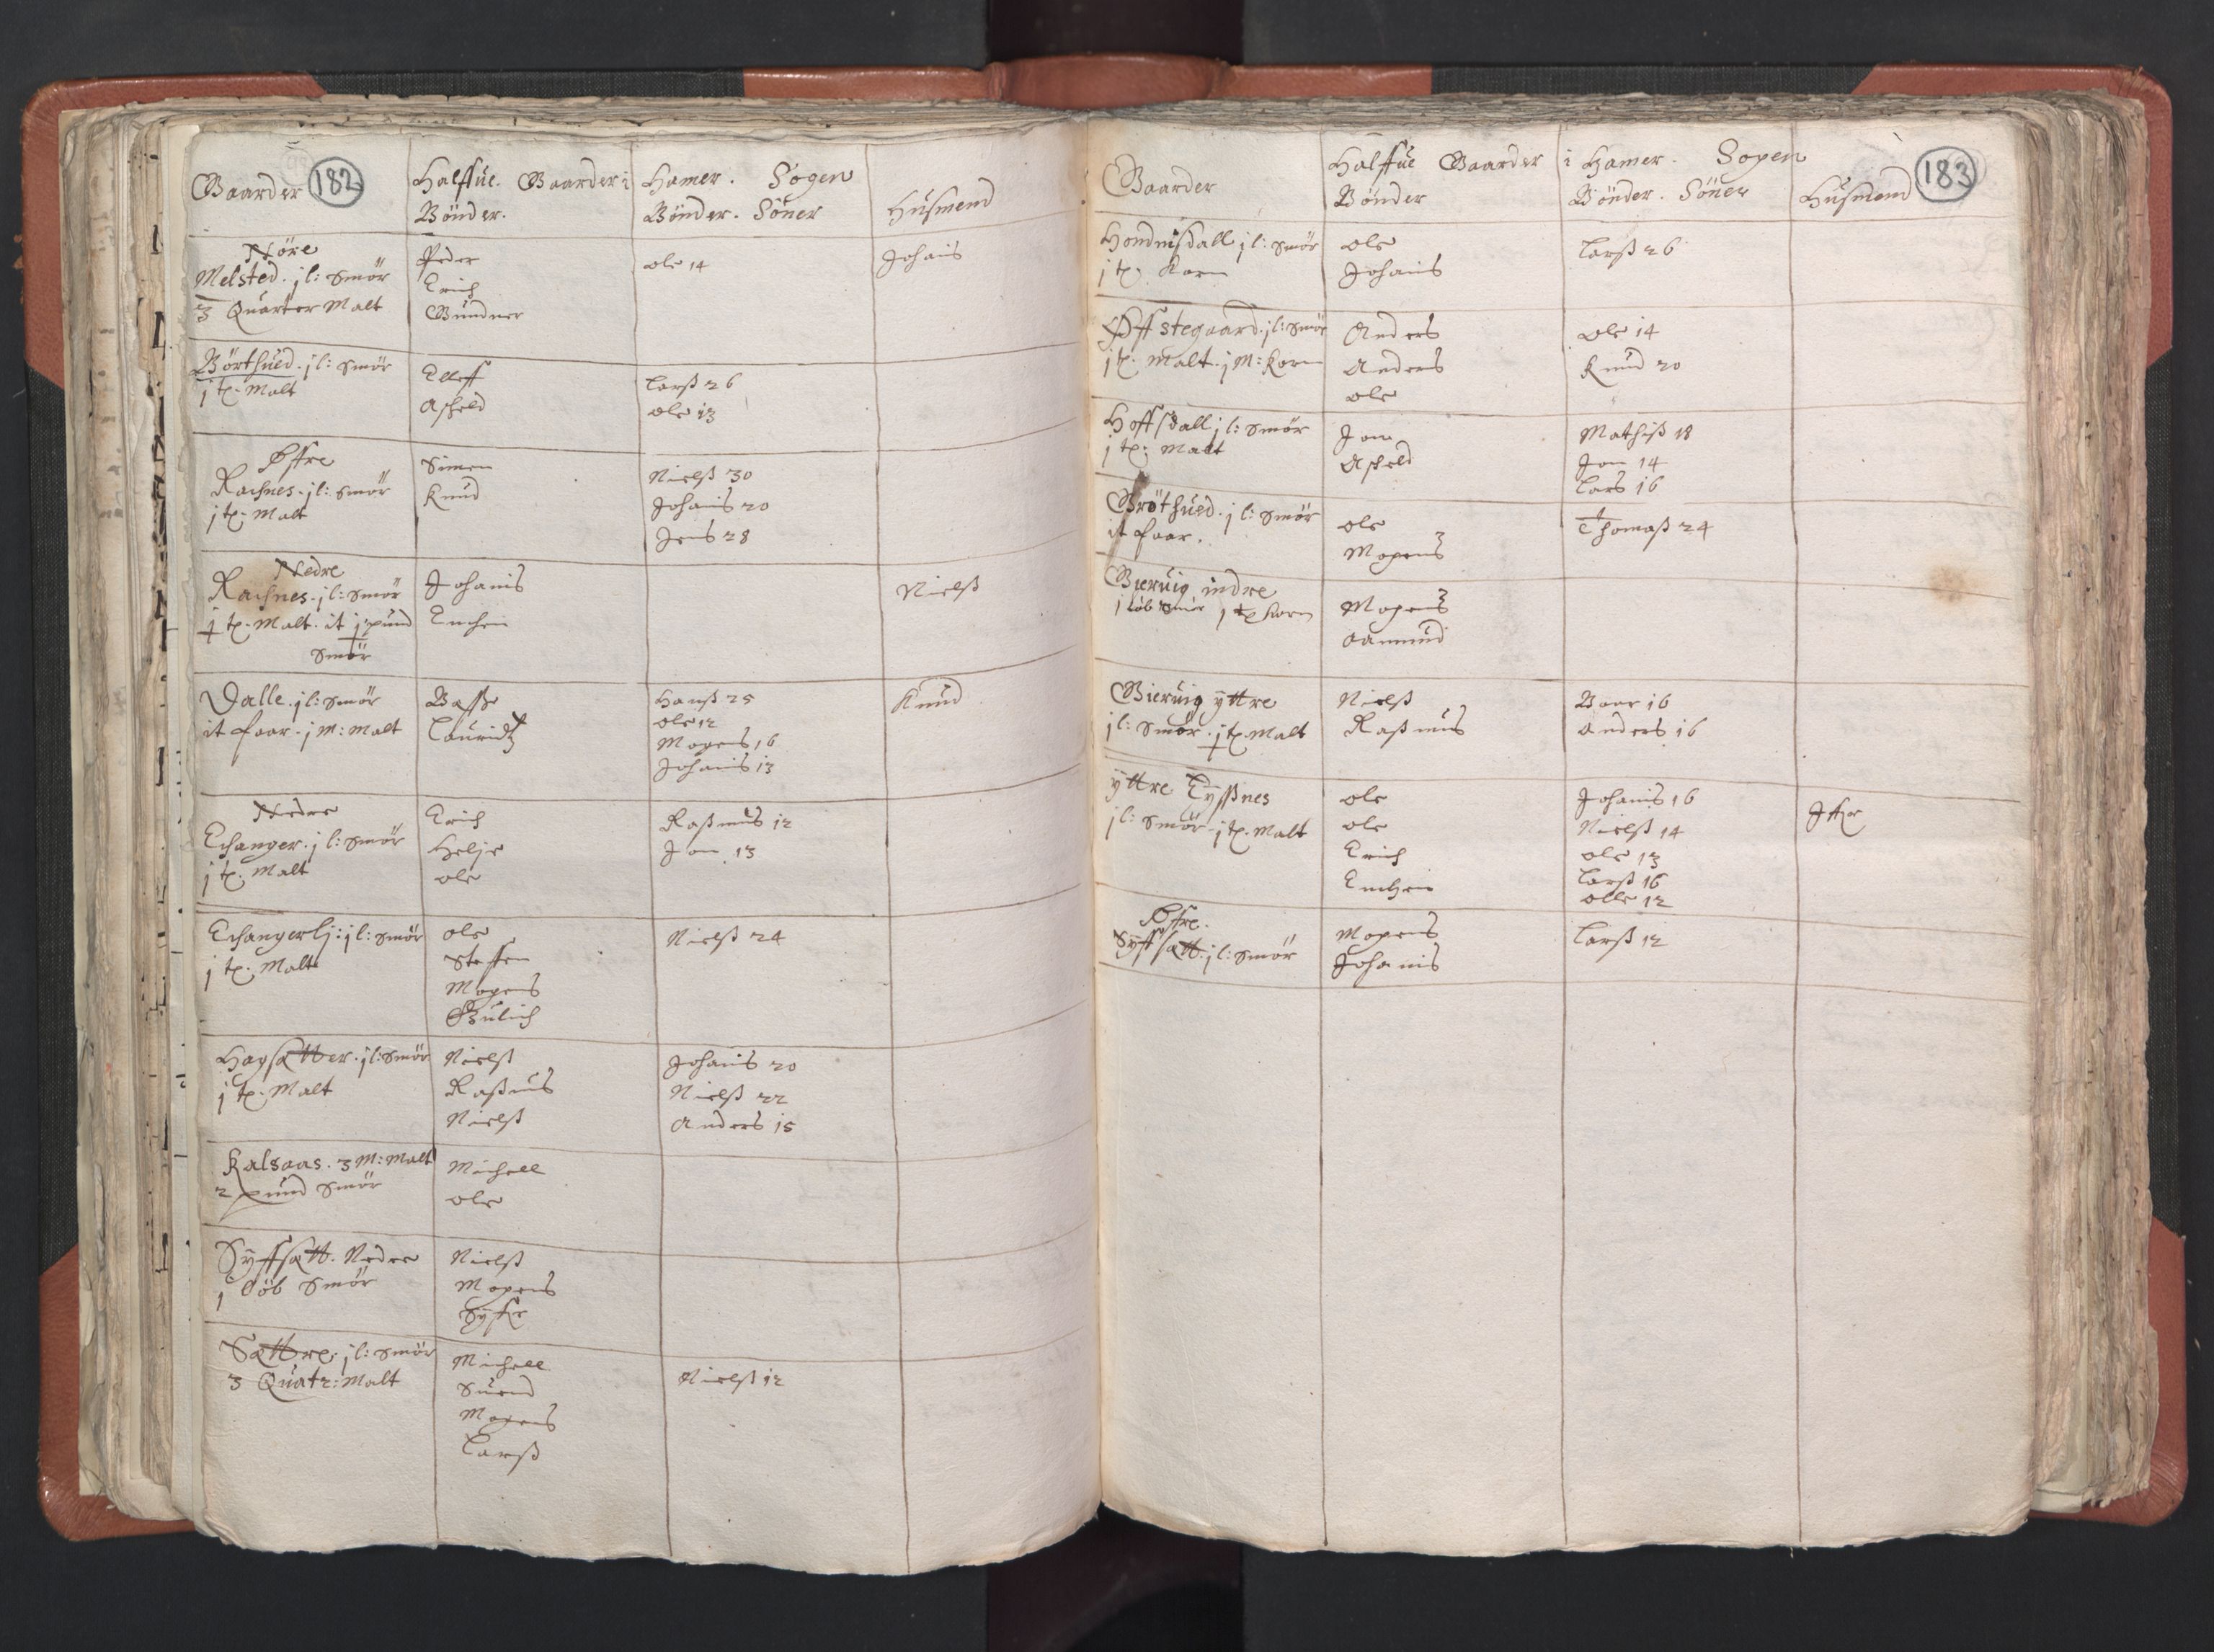 182
Halffue Gaarder i Hamer. Sogen
Gaarder Bönder. Bönder. Söner Hüsmend
Nöre
Melsted. j l: Smör
3 Quarter Malt
Peder
Erich
Gundner
ole 14
Johanis
Börthued. j l: Smör
j tp. Malt
Elleff
Asheld
Larß 26
ole 13
Østre
Rachnes. j l: Smör
j tp. Malt
Simen
Knud
Nielß 30
Johanis 20
Jens 28
Nedre
Rachnes. j l: Smör
j tp. Malt. it j pund
Smör
Johanis
Enchen
Nielß
Dalle. j l: Smör
it faar. j M: Malt
Basse
Lauridtz
Hanß 25
ole 12
Mogens 16
Johanis 13
Knud
Nedre
Echanger. j l: Smör
j tp. Malt
Erich
Helje
ole
Raßmus 12
Jon 13
Echangerlj: j l: Smör
j tp. Malt
ole
Steffen
Mogens
Gulich
Nielß 24
Hagsætter. j l: Smör
j tp. Malt
Nielß
Raßmus
Nielß
Johanis 20
Nielß 22
Anders 15
Kalsaas. 3 M: Malt
2 pund Smör
Michell
ole
Syffsætt. Nedre
1 Löb Smör
Nielß
Mogens
Syffr
Sættre: j l: Smör
3 Quatr: Malt
Michell
Suend
Mogens
Larß
Nielß 12
183
Halffue Gaarder i Hamer. Sogen
Gaarder Bönder Bönder. Söner Husmend
Hondnisdall j l: Smör
j tp. Korn
ole
Johanis
Larß 26
Øffstegaard. j l: Smör
j tp. Malt. j M: Korn
Anders
Anders
ole
ole 14
Knud 20
Hoffsdall j l: Smör
j tp: Malt
Jon
Asheld
Mathiß 18
Jon 14
Lars 16
Gröthued. j l: Smör
it faar.
ole
Mogens
Thomaß 24
Gieruig indre
1 Löb Smör 1 tp Korn
Mogens
Aamund
Gieruig yttre
j l: Smör. j tp. Malt
Nielß
Raßmus
Baar 16
Anders 16
yttre Eyssßnes
j l: Smör. j tp. Malt
ole
ole
Erich
Enchen
Johanis 16
Nielß 14
ole 13
Larß 16
olle 12
Østre.
Syffsætt. j l: Smör
Mogens
Johanis
Larß 12